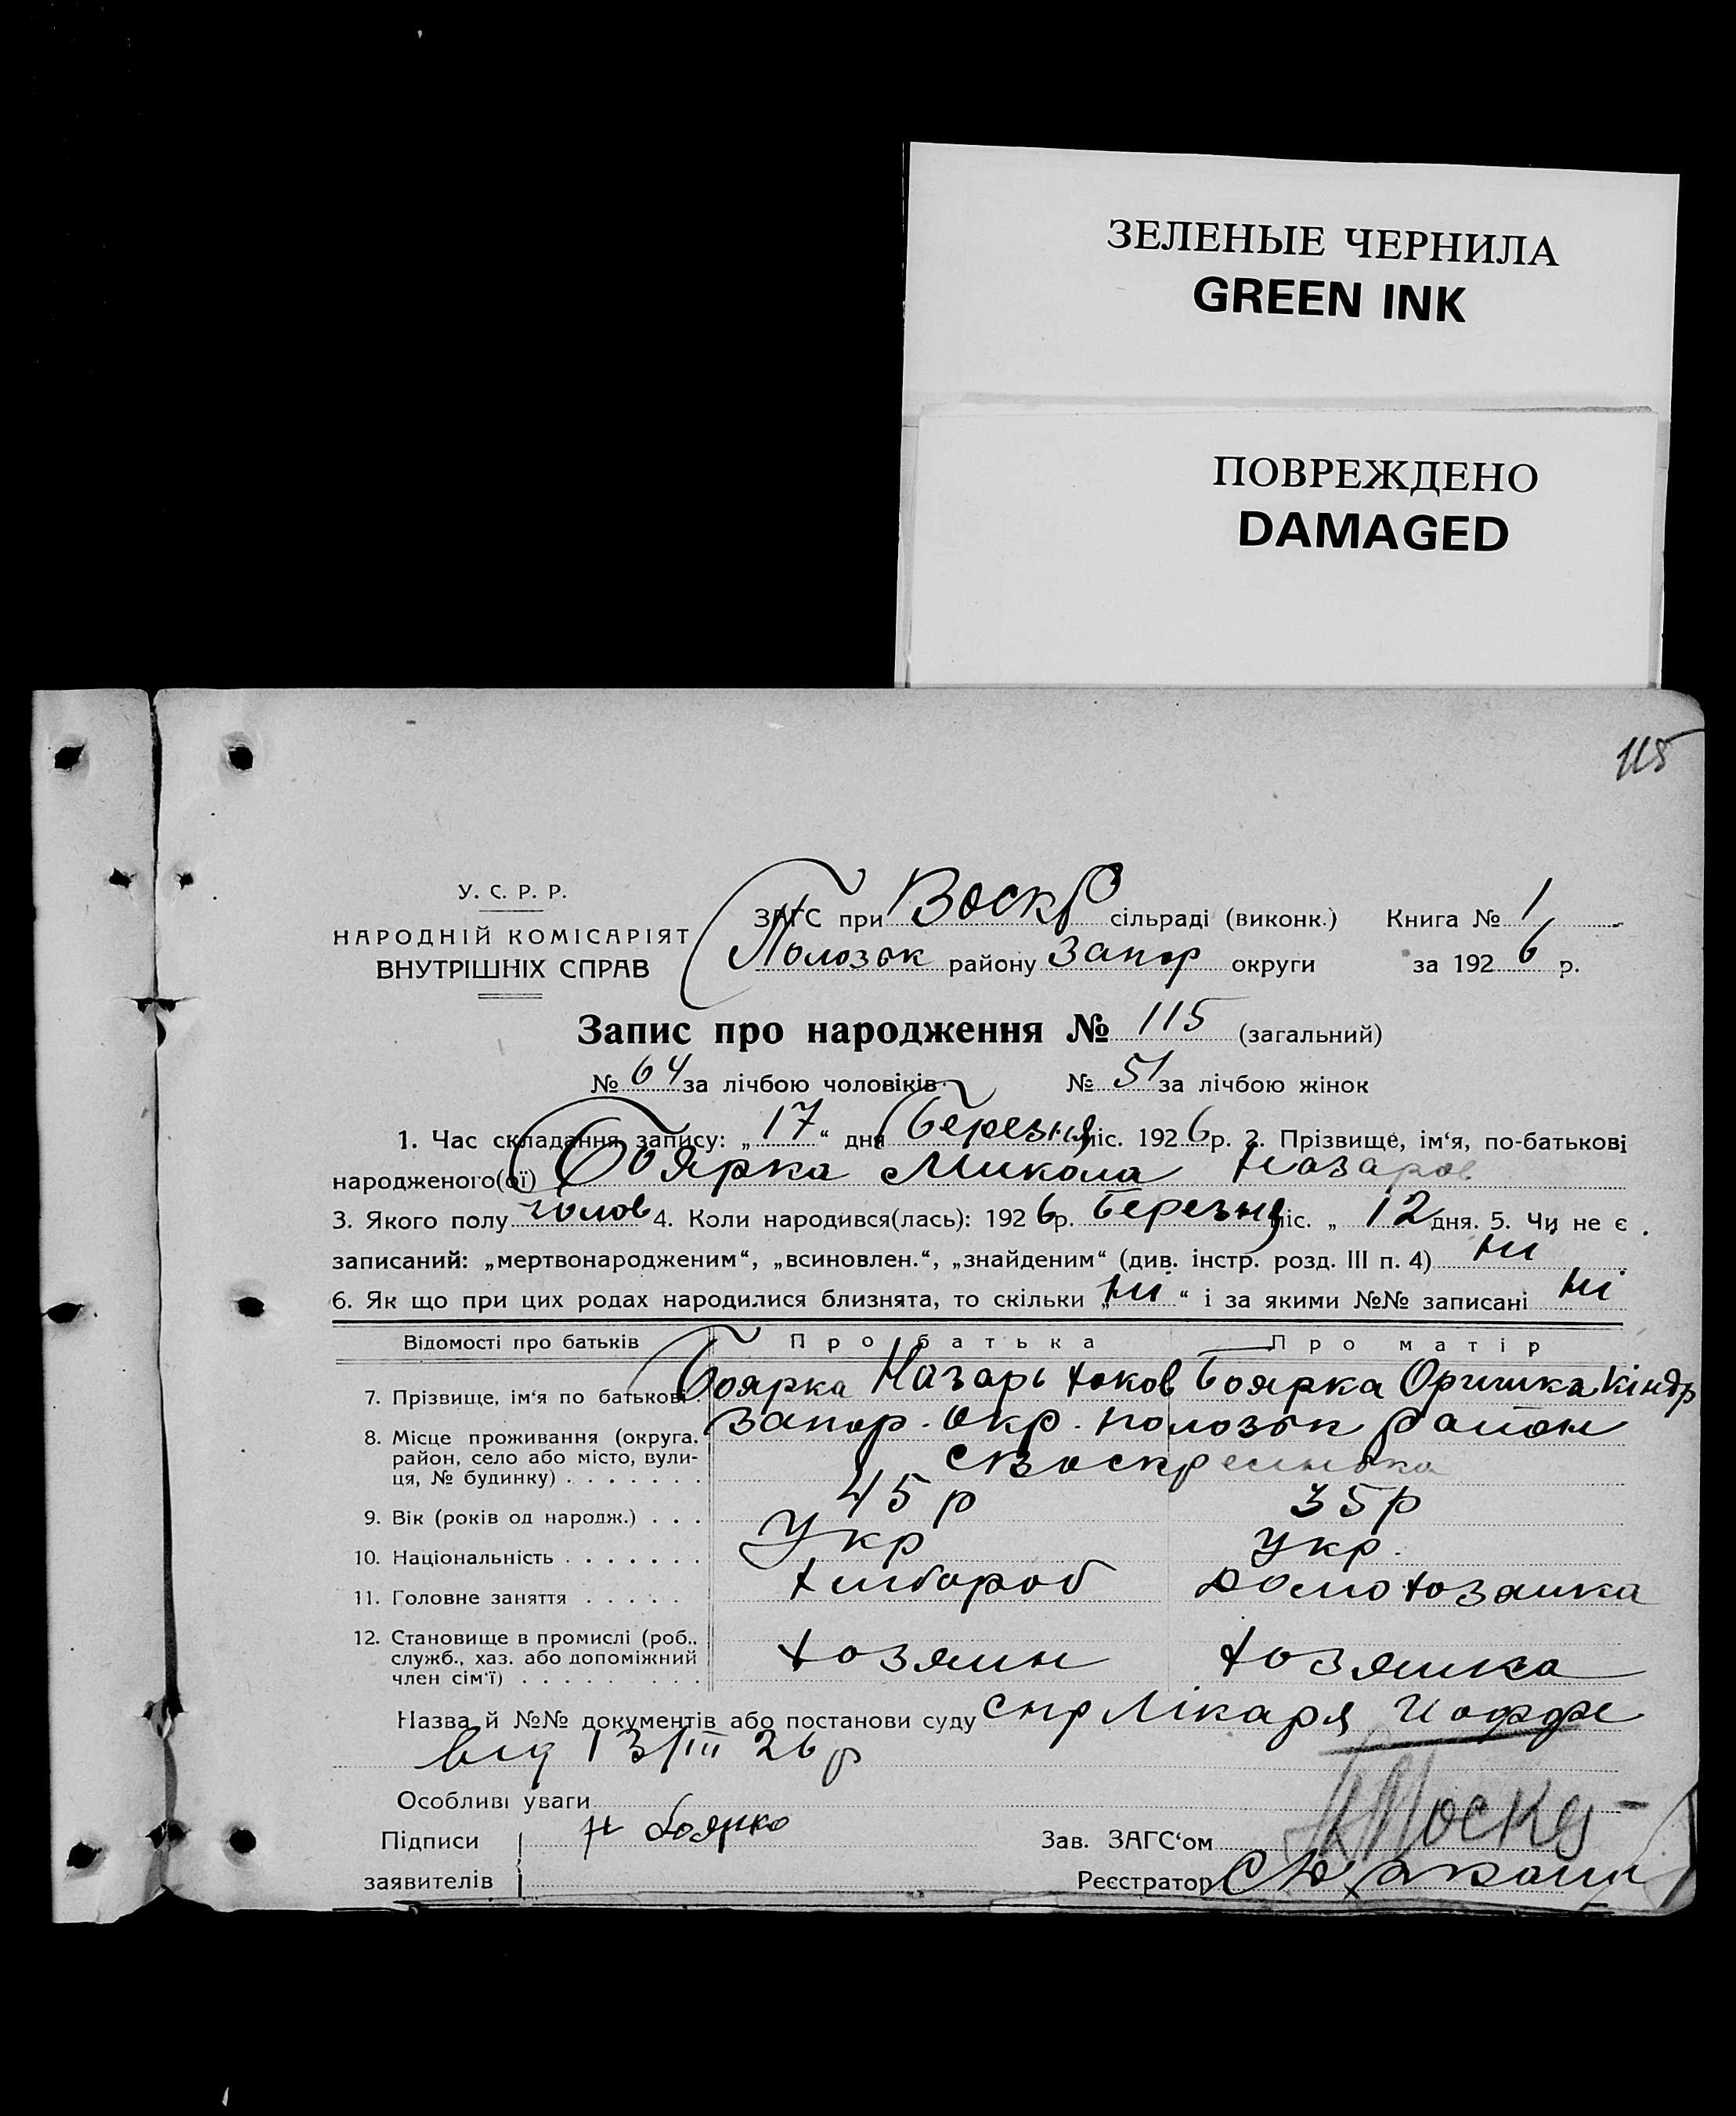 ЗЕЛЕНЫЕ ЧЕРНИЛА
GREEN INK
ПОВРЕЖДЕНО
DAMAGED
115
У. С. Р. Р.
НАРОДНІЙ КОМІСАРІЯТ
ВНУТРІШНІХ СПРАВ
ЗАГС при Воскр сільраді (виконк.) Книга № 1
Полозьк району Запор округи за 1926 р.
Запис про народження № 115 (загальний)
№ 64 за лічбою чоловіків № 51 за лічбою жінок
1. Час складання запису: „17“ дня Березня міс. 1926 р. 2. Прізвище, ім‘я, по-батькові
народженого(ої) Боярка Микола Назаров
3. Якого полу чолов 4. Коли народився(лась): 1926 р. Березня міс. „12 дня. 5. Чи не є
записаний: „мертвонародженим“, „всиновлен.“, „знайденим“ (див. інстр. розд. III п. 4) ні
6. Як що при цих родах народилися близнята, то скільки „ні“ і за якими №№ записані ні
Відомості про батьків Про батька Про матір
7. Прізвище, ім‘я по батькові . Боярка Назарь Яков Боярка Оришка Кіндр
8. Місце проживання (округа, район, село або місто, вули-ця, № будинку) . . . . . . . Запор. Окр. Полозьк район
с Воскресинька
9. Вік (років од народж.) . . . 45 р 35 р
10. Національність . . . . . . . Укр Укр.
11. Головне заняття . . . . . Хлібороб Домохозяйка
12. Становище в промислі (роб., служб., хаз. або допоміжний член сім‘ї) . . . . . . . . . Хозяин Хозяйка
Назва й №№ документів або постанови суду спр Лікаря Иоффе
від 13/III 26 р
Особливі уваги
Підписи Н Боярко Зав. ЗАГС‘ом
заявителів Реєстратор